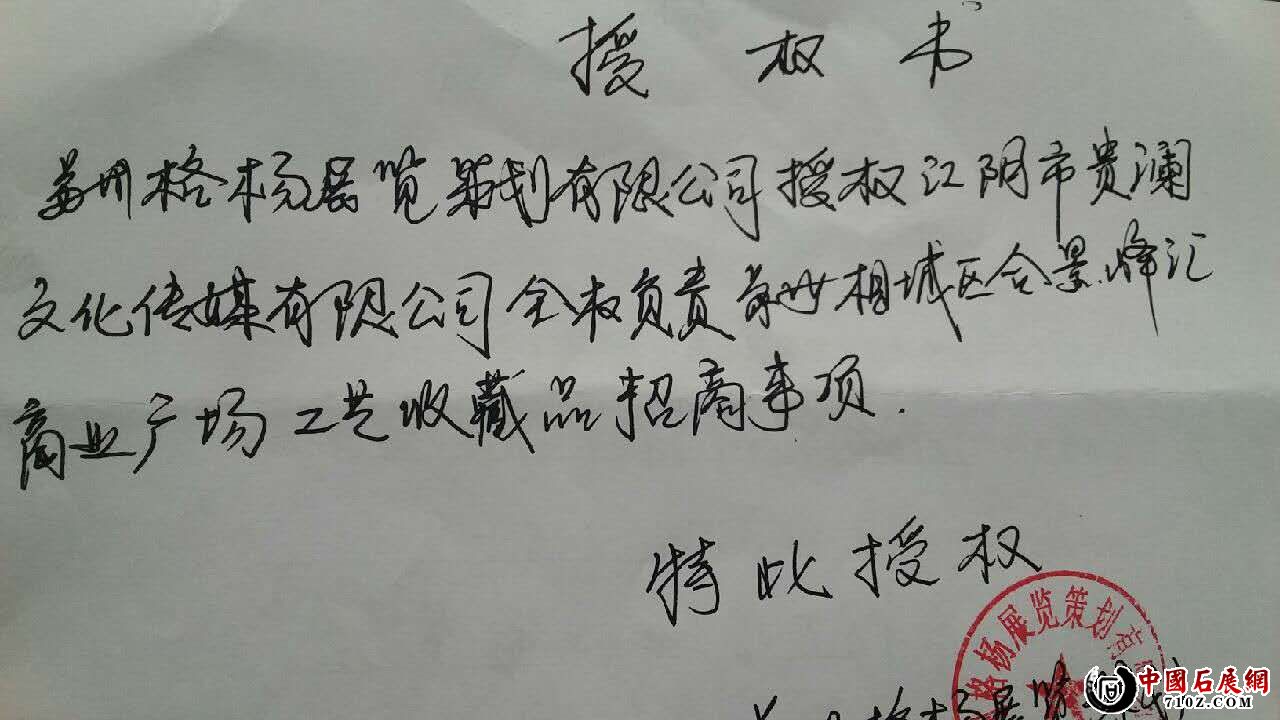 授权书
苏州格杨展览策划有限公司授权江阴市贵澜
文化传媒有限公司全权负责苏州相城区合景峰汇
商业广场工艺收藏品招商事项.
特此授权
格杨展览策划有
格杨展览
中國石展網
710Z.COM